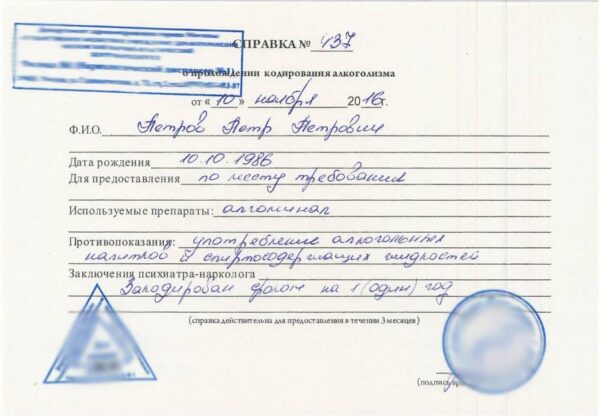 СПРАВКА № 437
о прохождении кодирования алкоголизма
от « 10 » ноября 2016 г.
Ф.И.О. Петров Петр Петрович
Дата рождения 10.10.1986
Для предоставления по месту требования
Используемые препараты: алгоминал
Противопоказания: употребление алкогольных
напитков и спиртосодержащих жидкостей
Заключения психиатра-нарколога
Закодирован сроком на 1 (один) год
(справка действительна для предоставления в течении 3 месяцев)
(подпись